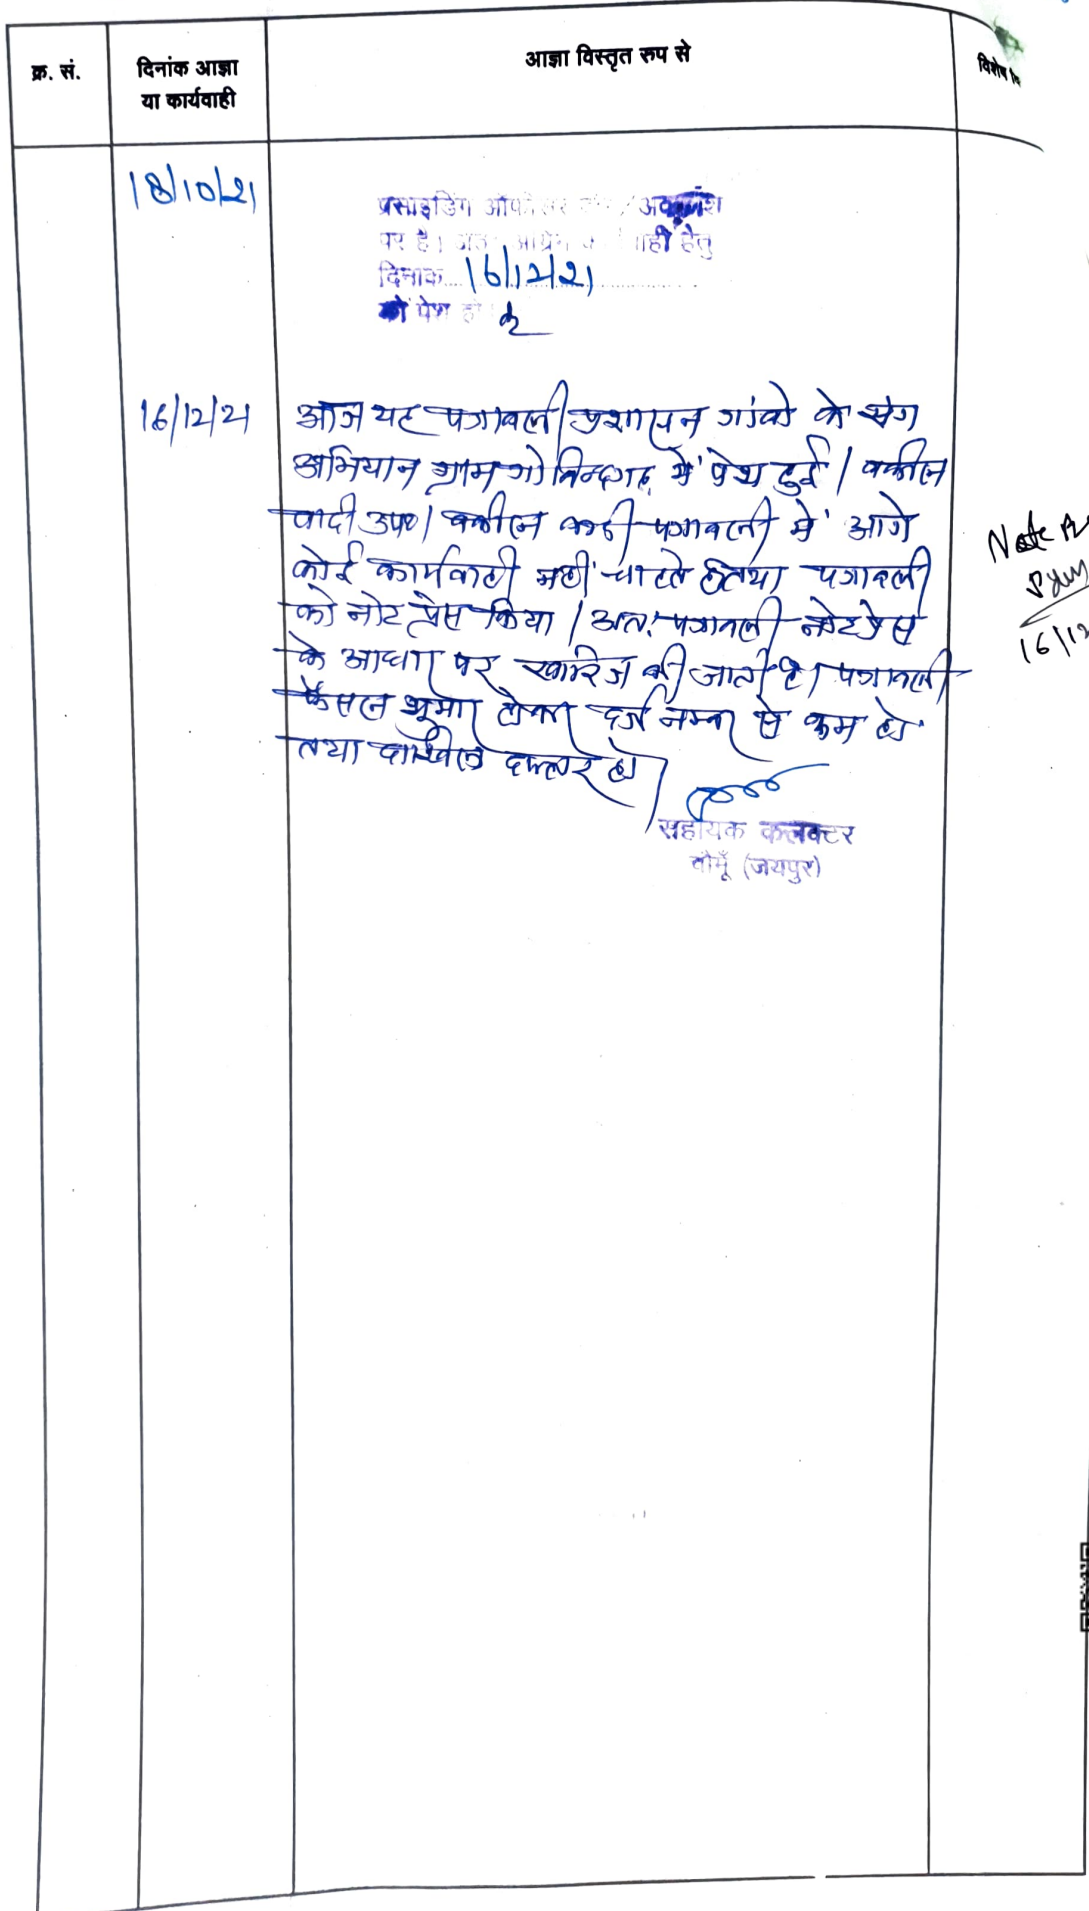 क्र. सं.
दिनांक आज्ञा
या कार्यवाही
आज्ञा विस्तृत रुप से
विशेष
18/10/21
प्रसाइडिंग
पर है। हेतु
दिनांक 16/12/21
को पेश हो
16/12/21
आज यह पत्रावली प्रशासन गांवो के संग
अभियान ग्राम गोविन्दगढ़ में पेश हुई। वकील
वादी उप०। वकील वादी पत्रावली में आगे
कोई कार्यवाही नहीं चाहते तथा पत्रावली
को नोट प्रेस किया। अतः पत्रावली नोट प्रेस
के आधार पर खारिज की जाती है। पत्रावली
फैसल शुमार होकर दर्ज नम्बर से कम हो
तथा दाखिल दफ्तर हो।
सहायक कलक्टर
चौमूँ (जयपुर)
16/12